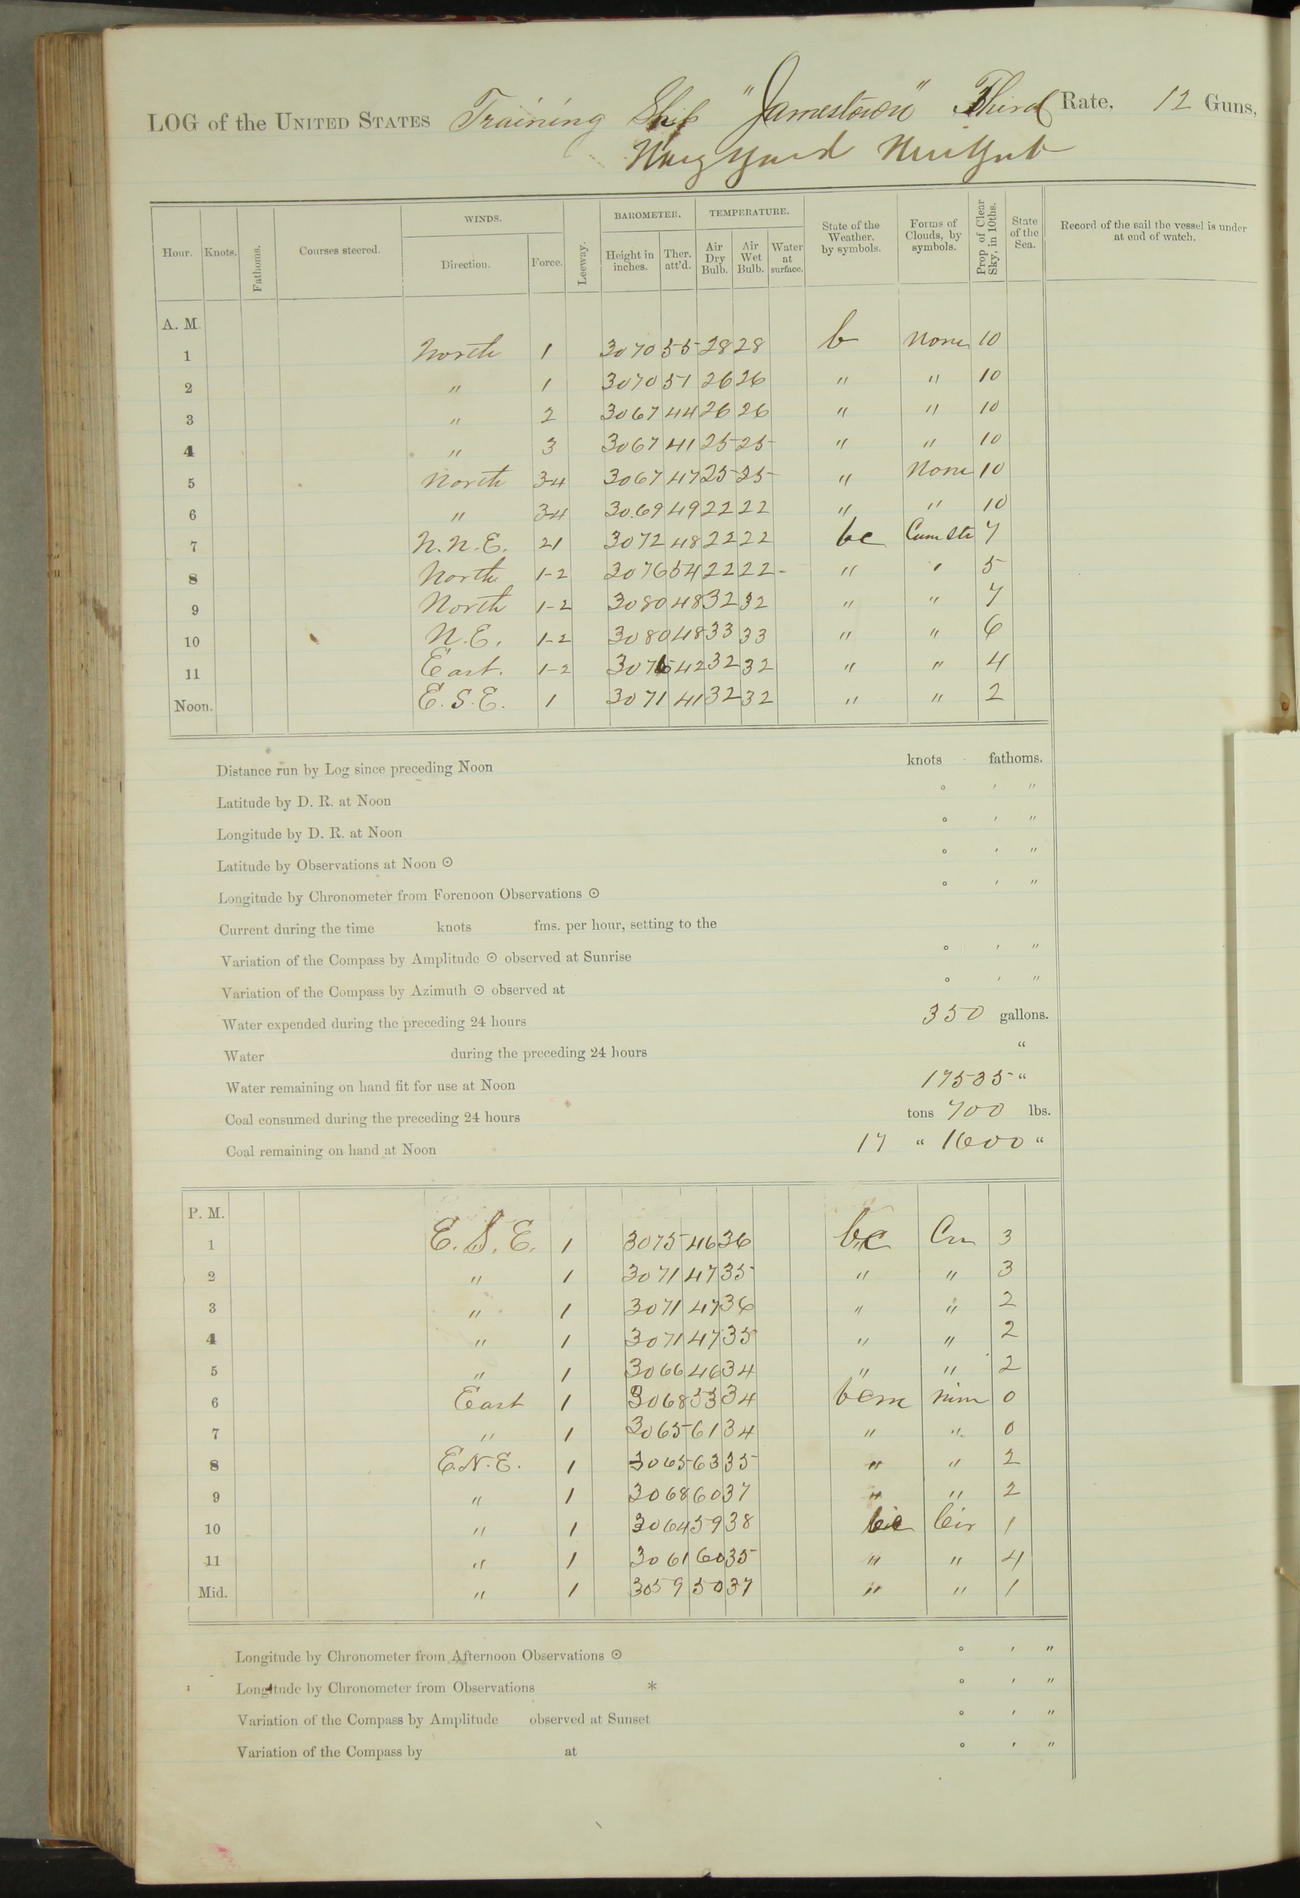 LOG of the UNITED STATES Training Ship "Jamestown" Third Rate, 12 Guns,
Navy Yard New York
Hour. Knots. Fathoms. Courses steered. WINDS. Direction. Force. Leeway. BAROMETER. Height in inches. Ther. att'd. TEMPERATURE. Air Dry Bulb. Air Wet Bulb. Water at surface. State of the Weather, by symbols. Forms of Clouds, by symbols. Prop of Clear Sky, in 10ths. State of the Sea. Record of the sail the vessel is under at end of watch.
A. M.
1 North 1 3070 55 28 28 b None 10
2 " 1 3070 51 26 26 " " 10
3 " 2 3067 44 26 26 " " 10
4 " 3 3067 41 25 25 " " 10
5 North 3-4 3067 47 25 25 " None 10
6 " 3-4 30.69 49 22 22 " " 10
7 N.N.E. 21 3072 48 22 22 bc Cum Str 7
8 North 1-2 3076 54 22 22 " " 5
9 North 1-2 3080 48 32 32 " " 7
10 N.E. 1-2 3080 48 33 33 " " 6
11 East. 1-2 3076 42 32 32 " " 4
Noon. E.S.E. 1 3071 41 32 32 " " 2
Distance run by Log since preceding Noon knots fathoms.
Latitude by D. R. at Noon ° ' "
Longitude by D. R. at Noon ° ' "
Latitude by Observations at Noon ⊙ ° ' "
Longitude by Chronometer from Forenoon Observations ⊙ ° ' "
Current during the time knots fms. per hour, setting to the
Variation of the Compass by Amplitude ⊙ observed at Sunrise ° ' "
Variation of the Compass by Azimuth ⊙ observed at ° ' "
Water expended during the preceding 24 hours 350 gallons.
Water during the preceding 24 hours "
Water remaining on hand fit for use at Noon 17535 "
Coal consumed during the preceding 24 hours tons 700 lbs.
Coal remaining on hand at Noon 17 " 1600 "
P. M.
1 E.S.E. 1 3075 46 36 bc Cu 3
2 " 1 3071 47 35 " " 3
3 " 1 3071 47 36 " " 2
4 " 1 3071 47 35 " " 2
5 " 1 3066 46 34 " " 2
6 East 1 3068 53 34 bcm nim 0
7 " 1 3065 61 34 " " 0
8 E.N.E. 1 3065 63 35 " " 2
9 " 1 3068 60 37 " " 2
10 " 1 3064 59 38 Cir 1
11 " 1 3061 60 35 " " 4
Mid. " 1 3059 50 37 " " 1
Longitude by Chronometer from Afternoon Observations ⊙ ° ' "
Longitude by Chronometer from Observations * ° ' "
Variation of the Compass by Amplitude observed at Sunset ° ' "
Variation of the Compass by at ° ' "